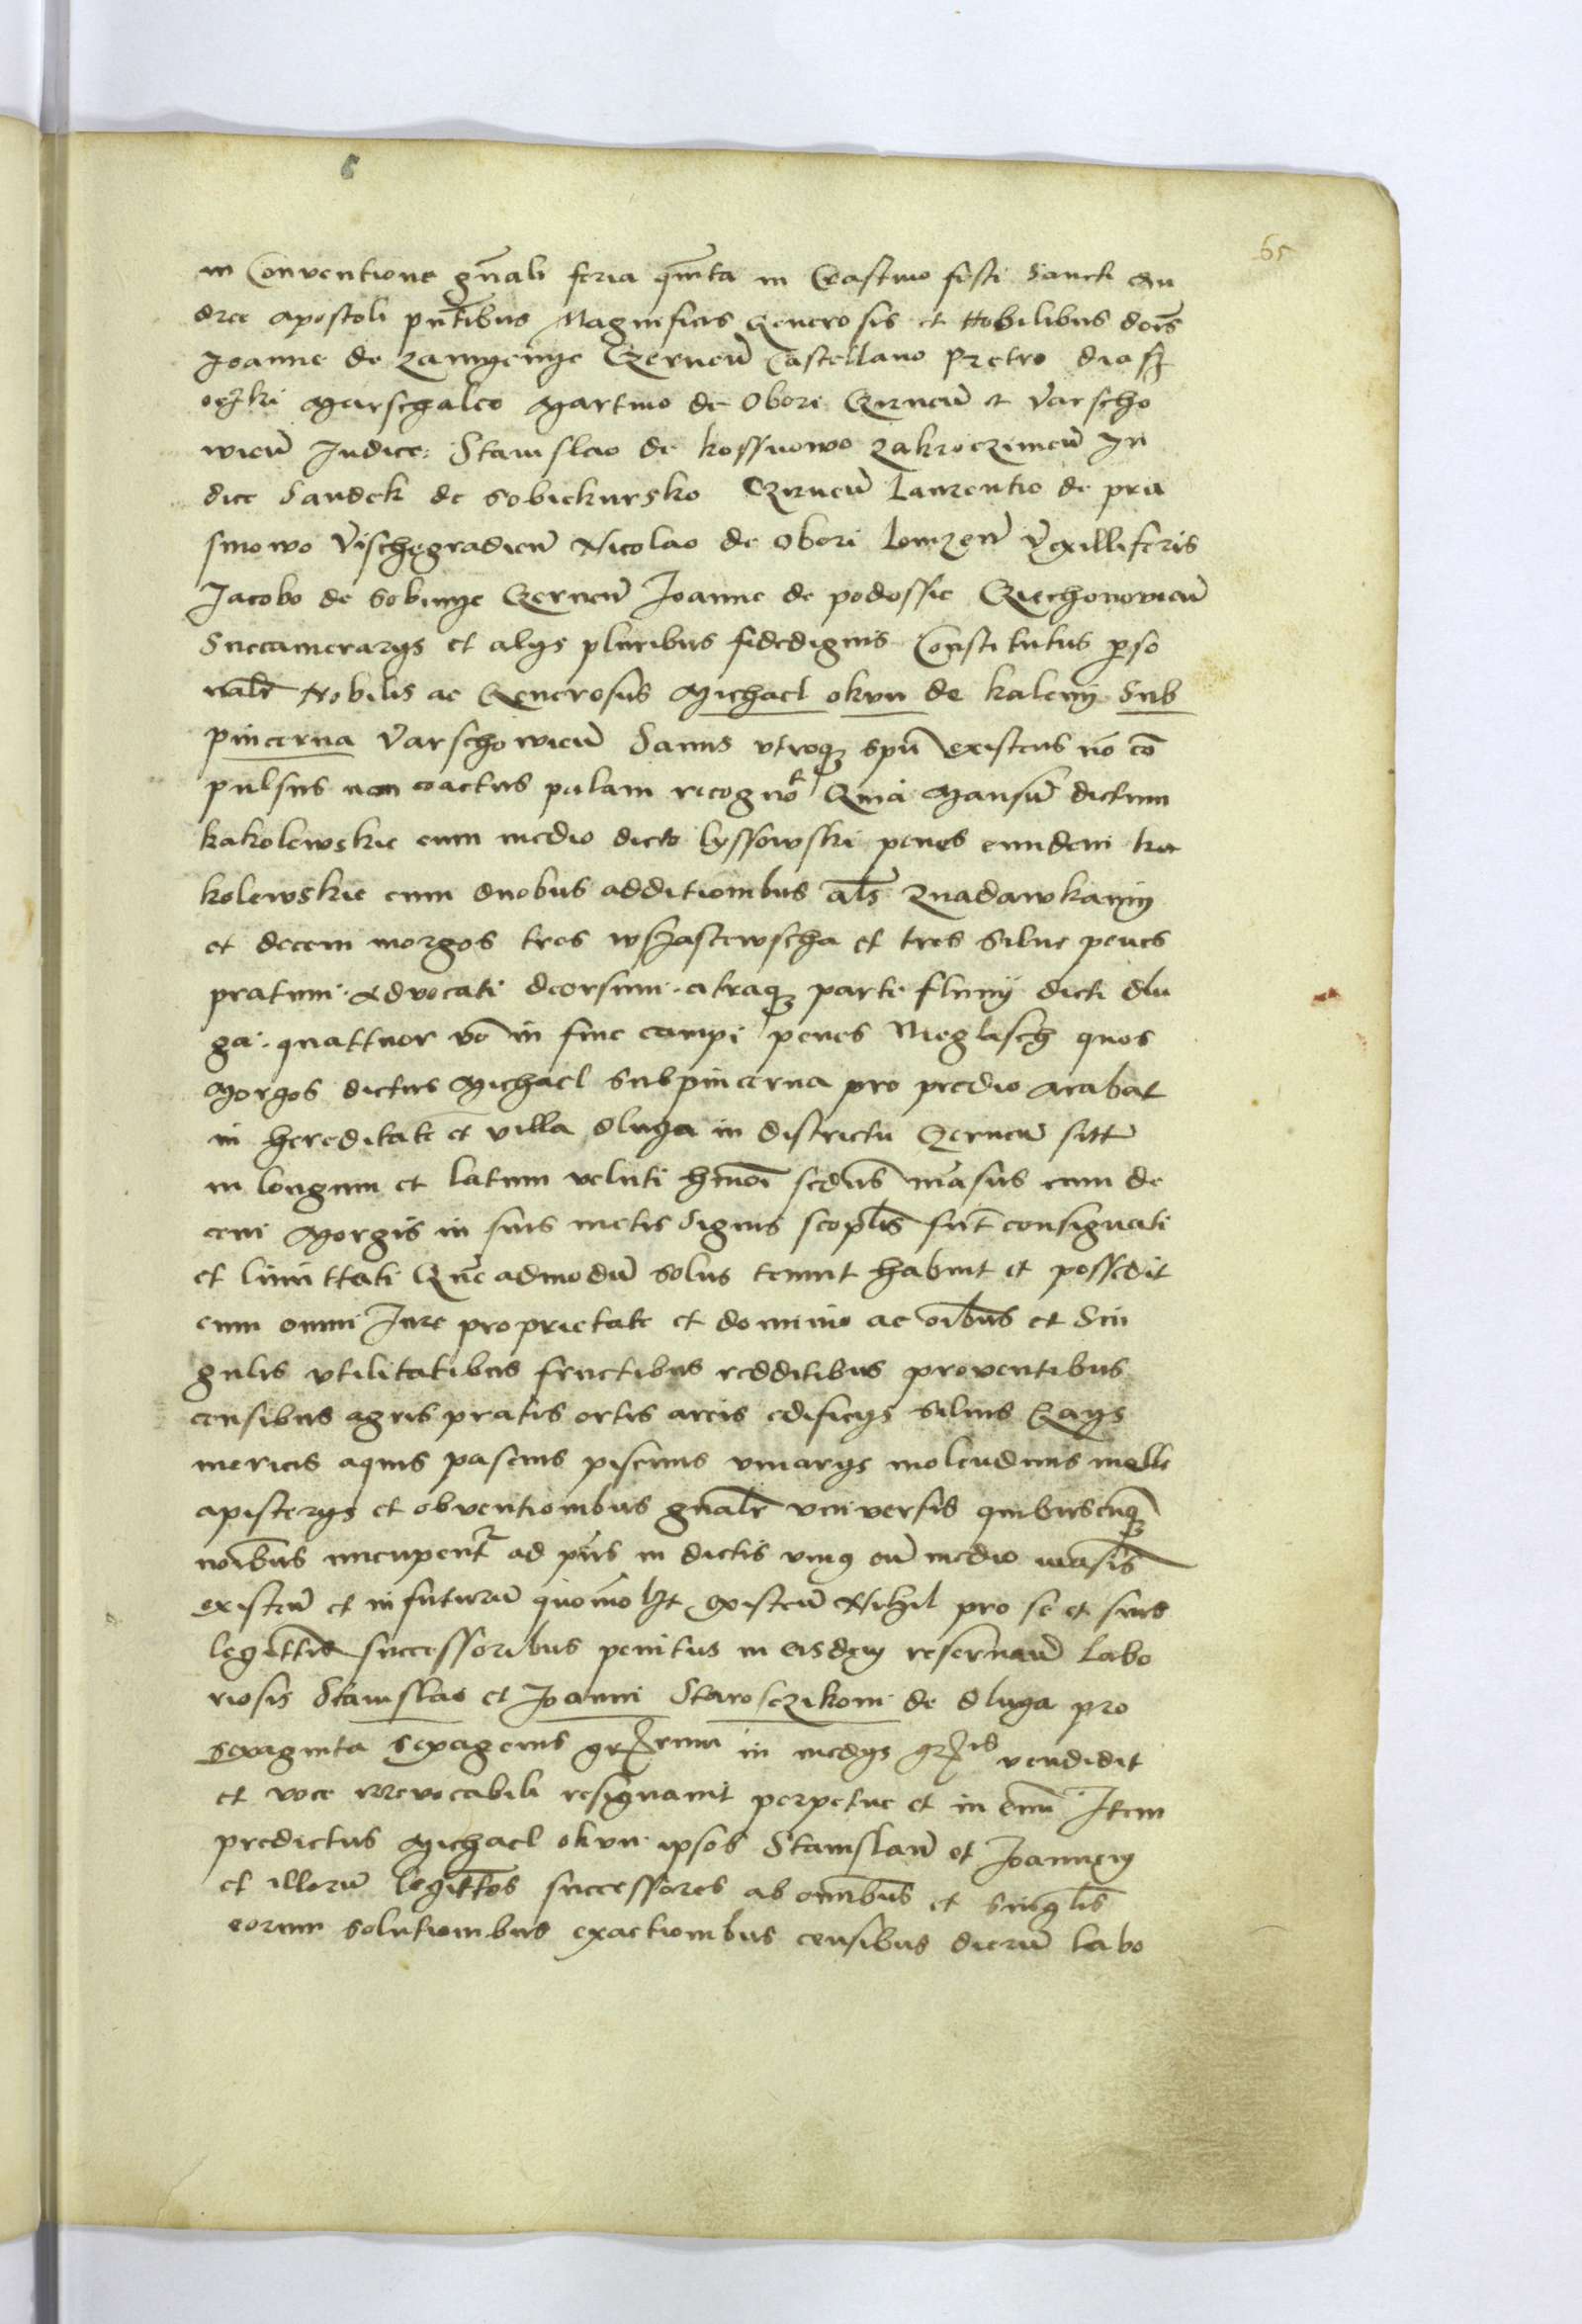 65
in Conventione gnali feria qnta in Crastino festi Sancti An
dree apostoli pntibus Magnificis Generosis et Nobilibus dois
Joanne de zamyenye Czerneñ Castellano Petro
Marsgalco Martino de Obori Czirneñ et Varscho
wieñ Judice Stanislao de kossnowo zakroczimeñ Ju
dice Sandek de Sobiekursko Czirneñ Laurentio de pra
smowo Vischegradieñ Nicolao de Obori Lomzeñ Vexilliferis
Jacobo de Sobinye Czerneñ Joanne de podossie Cziechonovieñ
Succamerarys et alys pluribus fidedignis Constitutus perso
nalr Nobilis ac Generosus Michael okvn de kaleny Sub
pincerna Varschowieñ Sanus vtroqз spũ existens nõ cõ
pulsus non coactus palam recognot Quia Mansũ dictum
kakolewskie cum medio dicto lyssowski penes eundem ka
kolewskie cum duobus additionibus als znadawkamy
et decem morgos tres et tres silue penes
pratum Advocati deorsum atraqз parte fluuy dicti dlu
ga quattuor vo in fine campi penes Meglasch quos
Morgos dictus Michael Subpincerna pro predio arabat
in hereditate et villa dluga in districtu Czerneñ sitt
in longum et latum veluti hmoi sedus masus cum de
cem Morgis in suis metis signis scoplis sut consignati
et limittati Queadmodũ solus tenuit habuit et possedit
cum omni Jure proprietate et dominio ac oibus et Sin
gulis vtilitatibus fructibus redditibus proventibus
censibus agris pratis ortis areis edificys siluis Gays
mericis aquis pascuis piscinis vinarys molendinis melle
apisterys et obventionibus gnalr vniversis quibuscuqз
noibus nncupent ad pns in dictis vnius cũ medio masis
existeñ et in futurũ quomolзt existeñ Nihil pro se et suis
legittis successoribus penitus in eisdem reservanũ Labo
riosis Stanislao et Joanni Starosczikom de dluga pro
Sexaginta Sexagenis grзrum in medys grзis vendidit
et voce irrevocabili resignauit perpetue et in evũ Item
predictus Michael okvn ipsos Stanislaũ et Joannem
et illorũ legittos successores ab omibus et singlis
eorum solutionibus exactionibus censibus dierũ labo